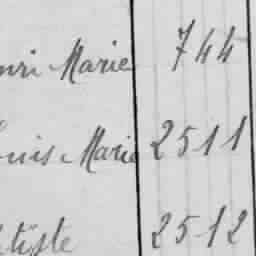 nri Marie 744
ouis Marie 2511
tiste 2512